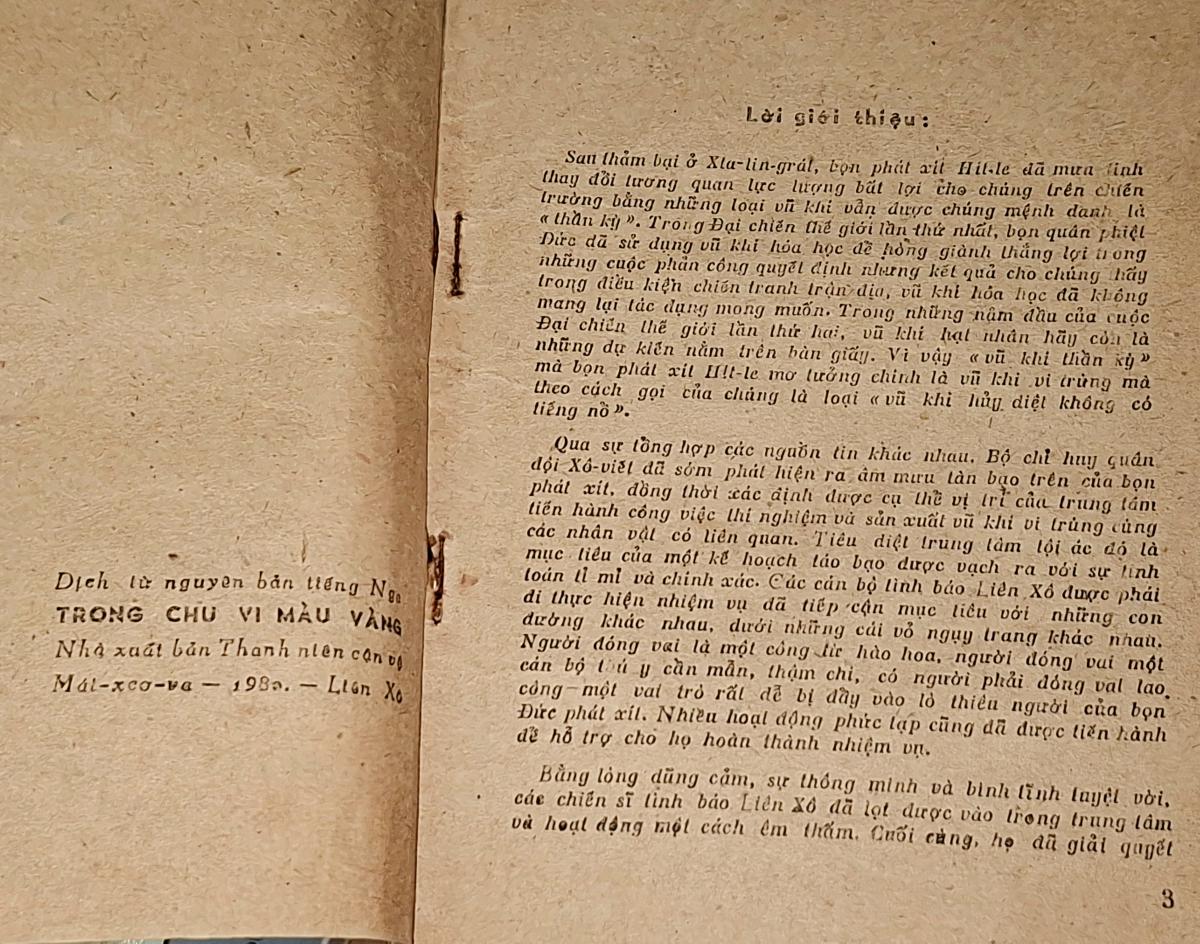 Dịch từ nguyên bản tiếng Nga
TRONG CHU VI MÀU VÀNG
Nhà xuất bản Thanh niên cận vệ
Mát-xcơ-va — 198 — Liên Xô
Lời giới thiệu:
Sau thảm bại ở Xta-lin-grát, bọn phát xít Hít-le đã mưu tính
thay đổi tương quan lực lượng bất lợi cho chúng trên chiến
trường bằng những loại vũ khí vẫn được chúng mệnh danh là
« thần kỳ ». Trong Đại chiến thế giới lần thứ nhất, bọn quân phiệt
Đức đã sử dụng vũ khí hóa học để hòng giành thắng lợi trong
những cuộc phản công quyết định nhưng kết quả cho chúng thấy
trong điều kiện chiến tranh trận địa, vũ khí hóa học đã không
mang lại tác dụng mong muốn. Trong những năm đầu của cuộc
Đại chiến thế giới lần thứ hai, vũ khí hạt nhân hãy còn là
những dự kiến nằm trên bàn giấy. Vì vậy « vũ khí thần kỳ »
mà bọn phát xít Hít-le mơ tưởng chính là vũ khí vi trùng mà
theo cách gọi của chúng là loại « vũ khí hủy diệt không có
tiếng nổ ».
Qua sự tổng hợp các nguồn tin khác nhau. Bộ chỉ huy quân
đội Xô-viết đã sớm phát hiện ra âm mưu tàn bạo trên của bọn
phát xít, đồng thời xác định được cụ thể vị trí của trung tâm
tiến hành công việc thí nghiệm và sản xuất vũ khí vi trùng cùng
các nhân vật có liên quan. Tiêu diệt trung tâm tội ác đó là
mục tiêu của một kế hoạch táo bạo được vạch ra với sự tính
toán tỉ mỉ và chính xác. Các cán bộ tình báo Liên Xô được phải
đi thực hiện nhiệm vụ đã tiếp cận mục tiêu với những con
đường khác nhau, dưới những cái vỏ ngụy trang khác nhau.
Người đóng vai là một công tử hào hoa, người đóng vai một
cán bộ thú y cần mẫn, thậm chí, có người phải đóng vai lao
công — một vai trò rất dễ bị đẩy vào lò thiêu người của bọn
Đức phát xít. Nhiều hoạt động phức tạp cũng đã được tiến hành
để hỗ trợ cho họ hoàn thành nhiệm vụ.
Bằng lòng dũng cảm, sự thông minh và bình tĩnh tuyệt vời,
các chiến sĩ tình báo Liên Xô đã lọt được vào trong trung tâm
và hoạt động một cách êm thấm. Cuối cùng, họ đã giải quyết
3